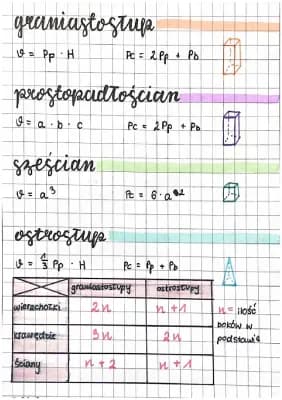 graniastosłup
V = Pp · H Pc = 2Pp + Pb
prostopadłościan
V = a · b · c Pc = 2Pp + Pb
sześcian
V = a³ Pc = 6 · a²
ostrosłup
V = 1/3 Pp · H Pc = Pp + Pb
graniastosłupy ostrosłupy
wierzchołki 2n n+1
krawędzie 3n 2n
ściany n+2 n+1
n = ilość
boków w
podstawie